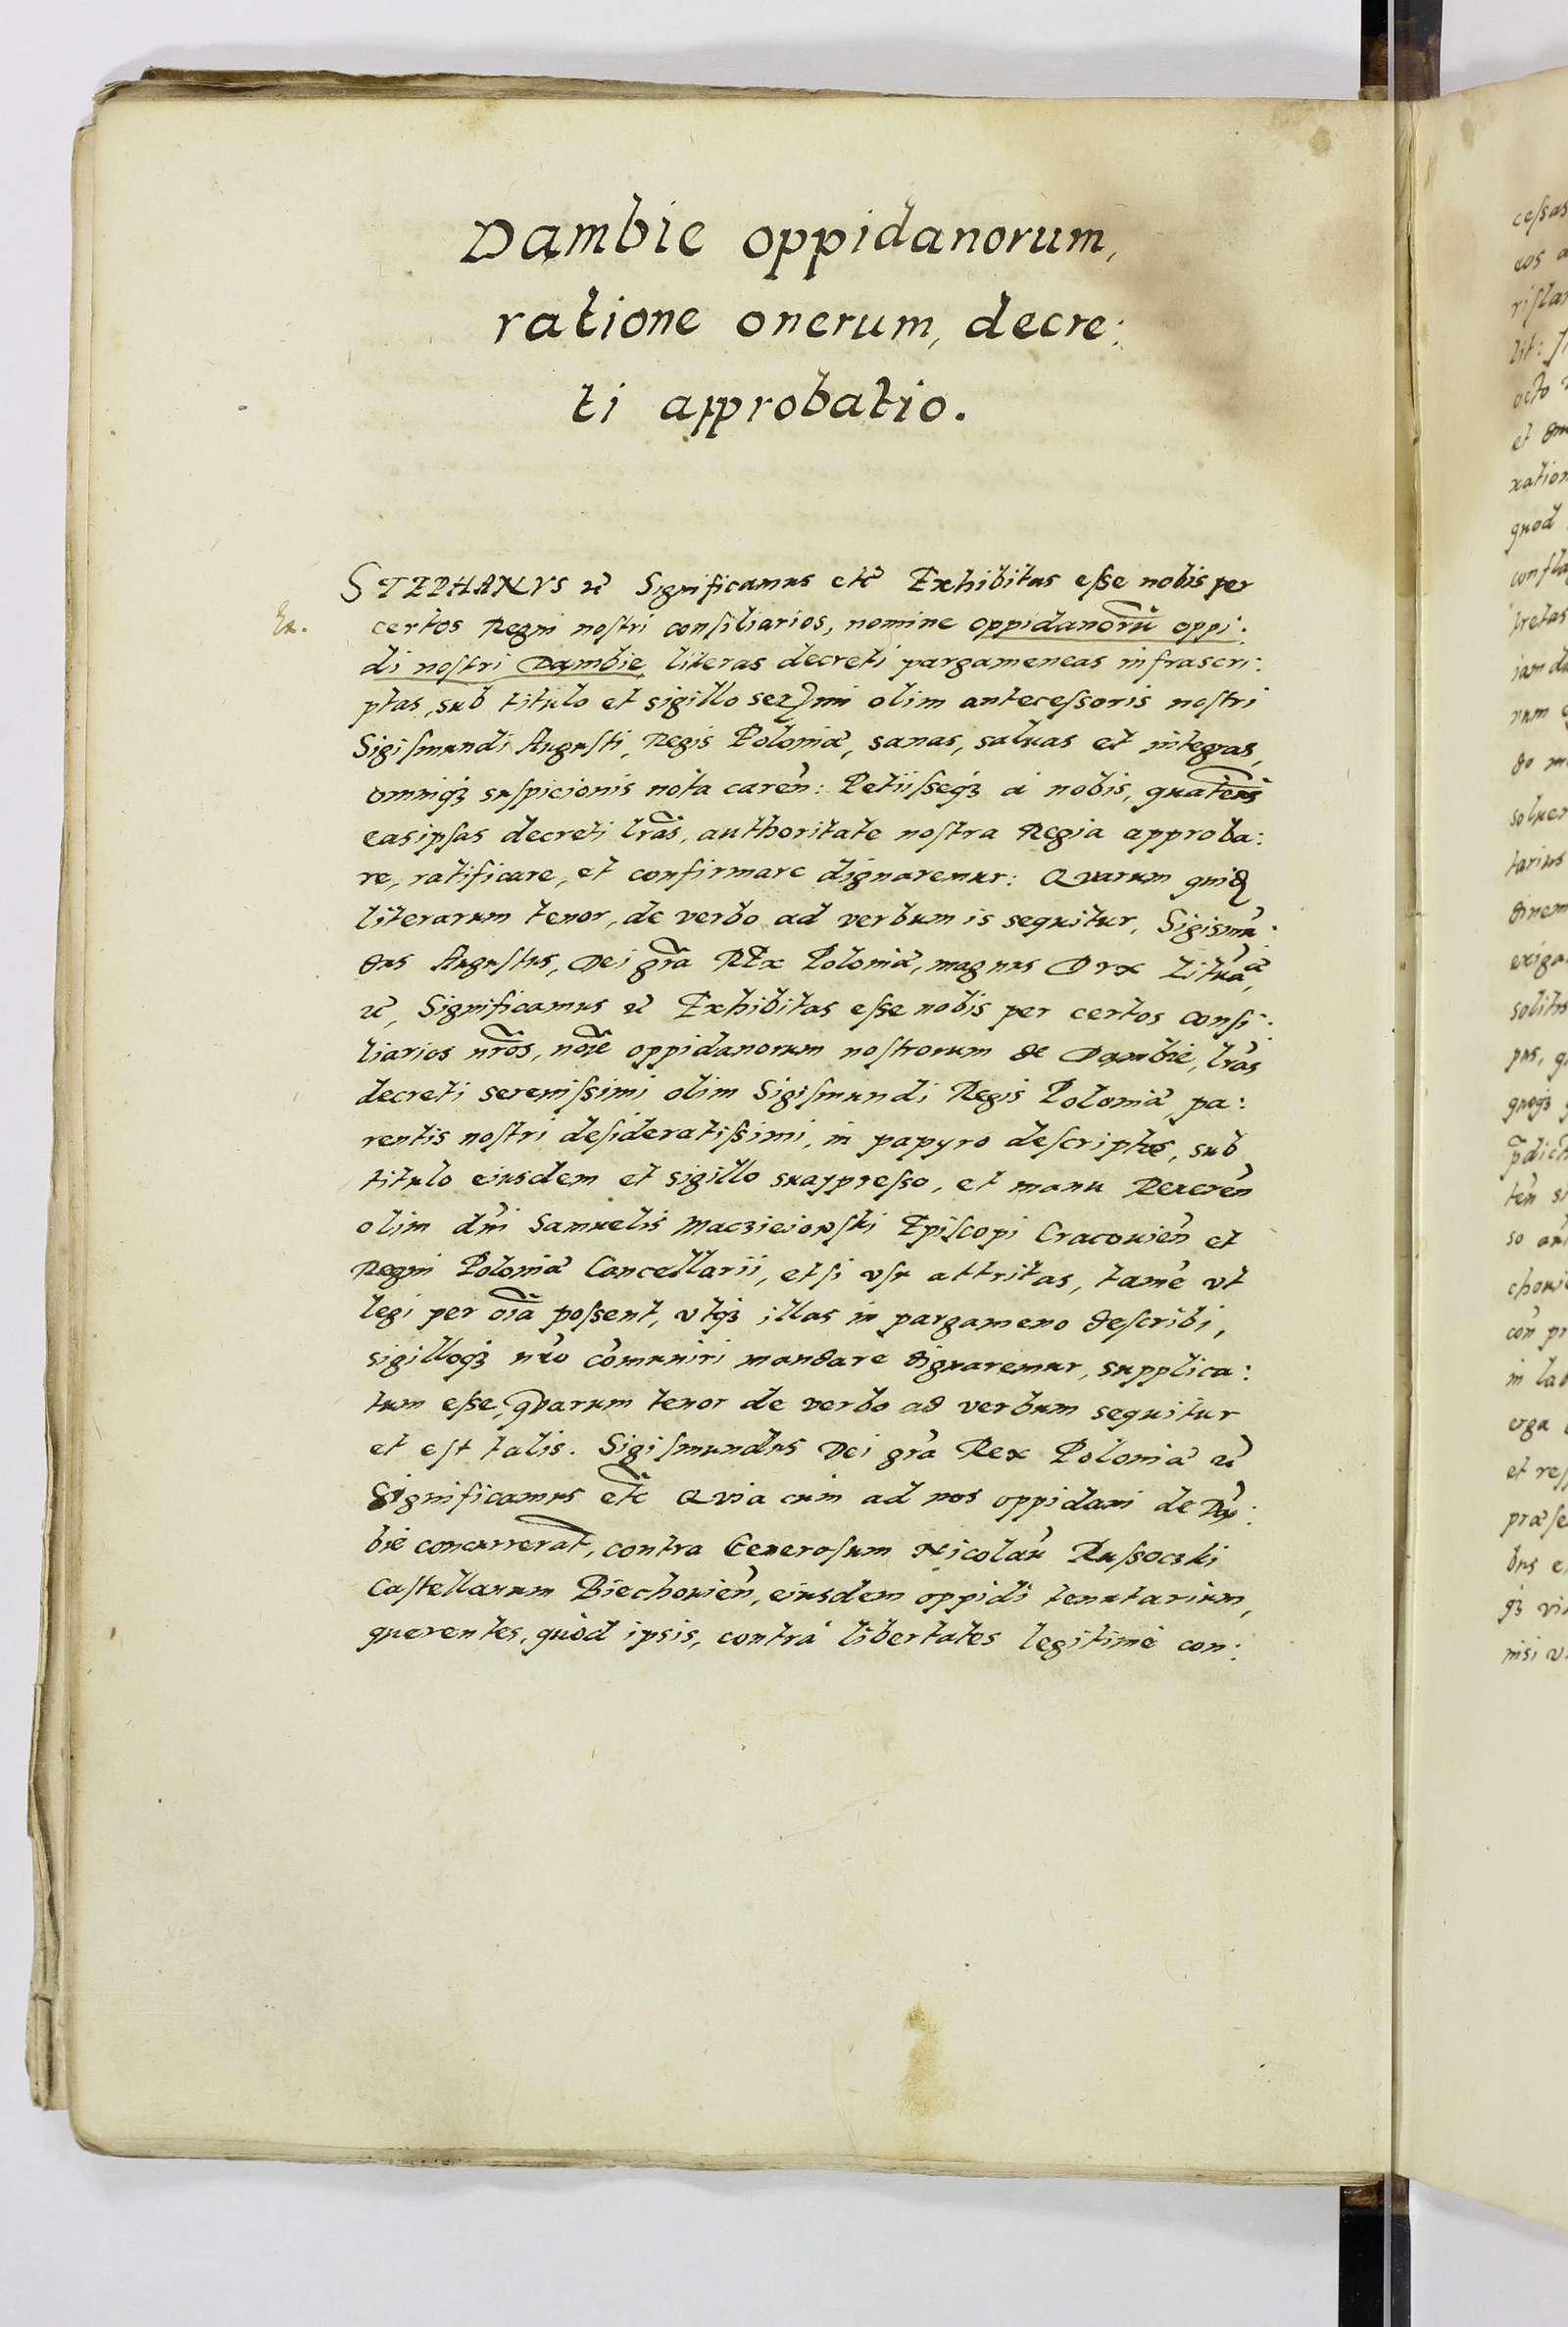 Dambie oppidanorum,
ratione onerum, decre:
ti approbatio.
STEPHANVS etc̃ Significamus etc̃ Exhibitas eſse nobis per
Ex.
certos Regni noſtri conſiliarios, nomine oppidanorũ oppi:
di noſtri Dambie, literas decreti pargameneas infrascri:
ptas, sub titulo et sigillo sermi olim anteceſsoris noſtri
Sigiſmundi Auguſti, Regis Poloniæ, sanas, saluas et integras,
omniqꝫ suſpicionis nota careñ: Petiiſseqꝫ à nobis, quateñs
easipsas decreti lr̃as, authoritate noſtra Regia approba:
re, ratificare, et confirmare dignaremur: Quarum quid
literarum tenor, de verbo ad verbum is sequitur, Sigismũ:
dus Auguſtus, Dei gr̃a REx Poloniæ, magnus Dvx Lituaæ,
etc̃, Significamus etc̃ Exhibitas eſse nobis per certos conſi:
liarios nr̃os, noie oppidanorum noſtrorum de Dambie, lr̃as
decreti sereniſsimi olim Sigiſmundi Regis Poloniæ, pa:
rentis noſtri deſideratiſsimi, in papyro deſcriptas, sub
titulo eiusdem et sigillo suappreſso, et manu Reuereñ
olim dñi Samuelis Maczieiowſki Epiſcopi Cracouieñ et
Regni Poloniæ Cancellarii, etſi vſu attritas, tamẽ vt
legi per oĩa poſsent, vtqꝫ illas in pargameno deſcribi,
sigilloqꝫ nr̃o com̃uniri mandare dignaremur, supplica:
tum eſse, qvarum tenor de verbo ad verbum sequitur
et eſt talis. Sigiſmundus Dei gr̃a Rex Poloniæ etc̃
Significamus etc̃ Qvia cum ad nos oppidani de Dam:
bie concurrerãt, contra Generoſum Nicolaũ Ruſsoczki
Caſtellanum Biechouieñ, eiusdem oppidi tenutarium,
querentes, quòd ipsis, contra libertates legitime con: